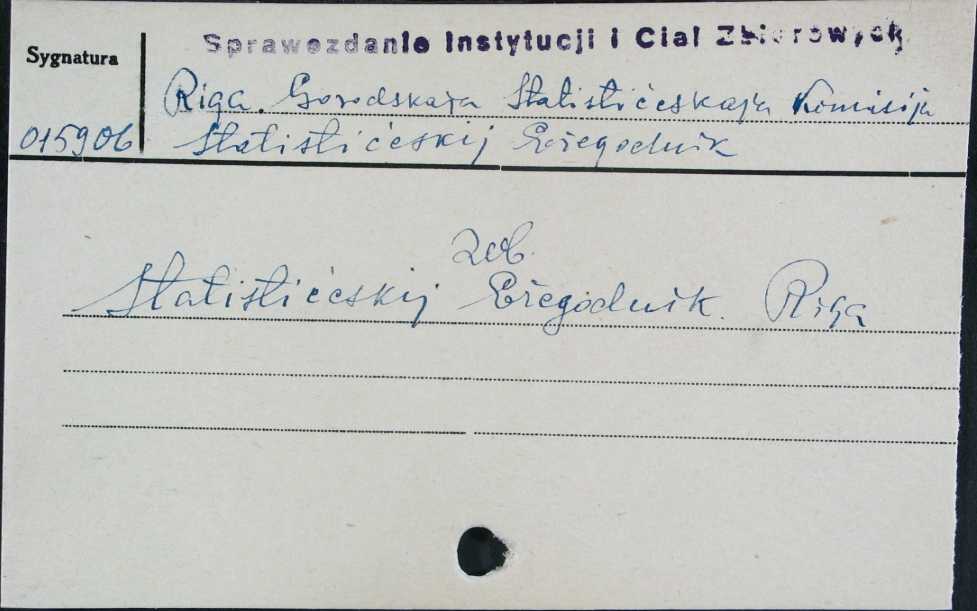 Sprawozdanie Instytucji i Ciał Zbiorowych
Sygnatura
Riga. Gorodskaja Statističeskaja Komisija
015906 Statističeskij Ežegodnik
zob.
Statističeskij Ežegodnik. Riga